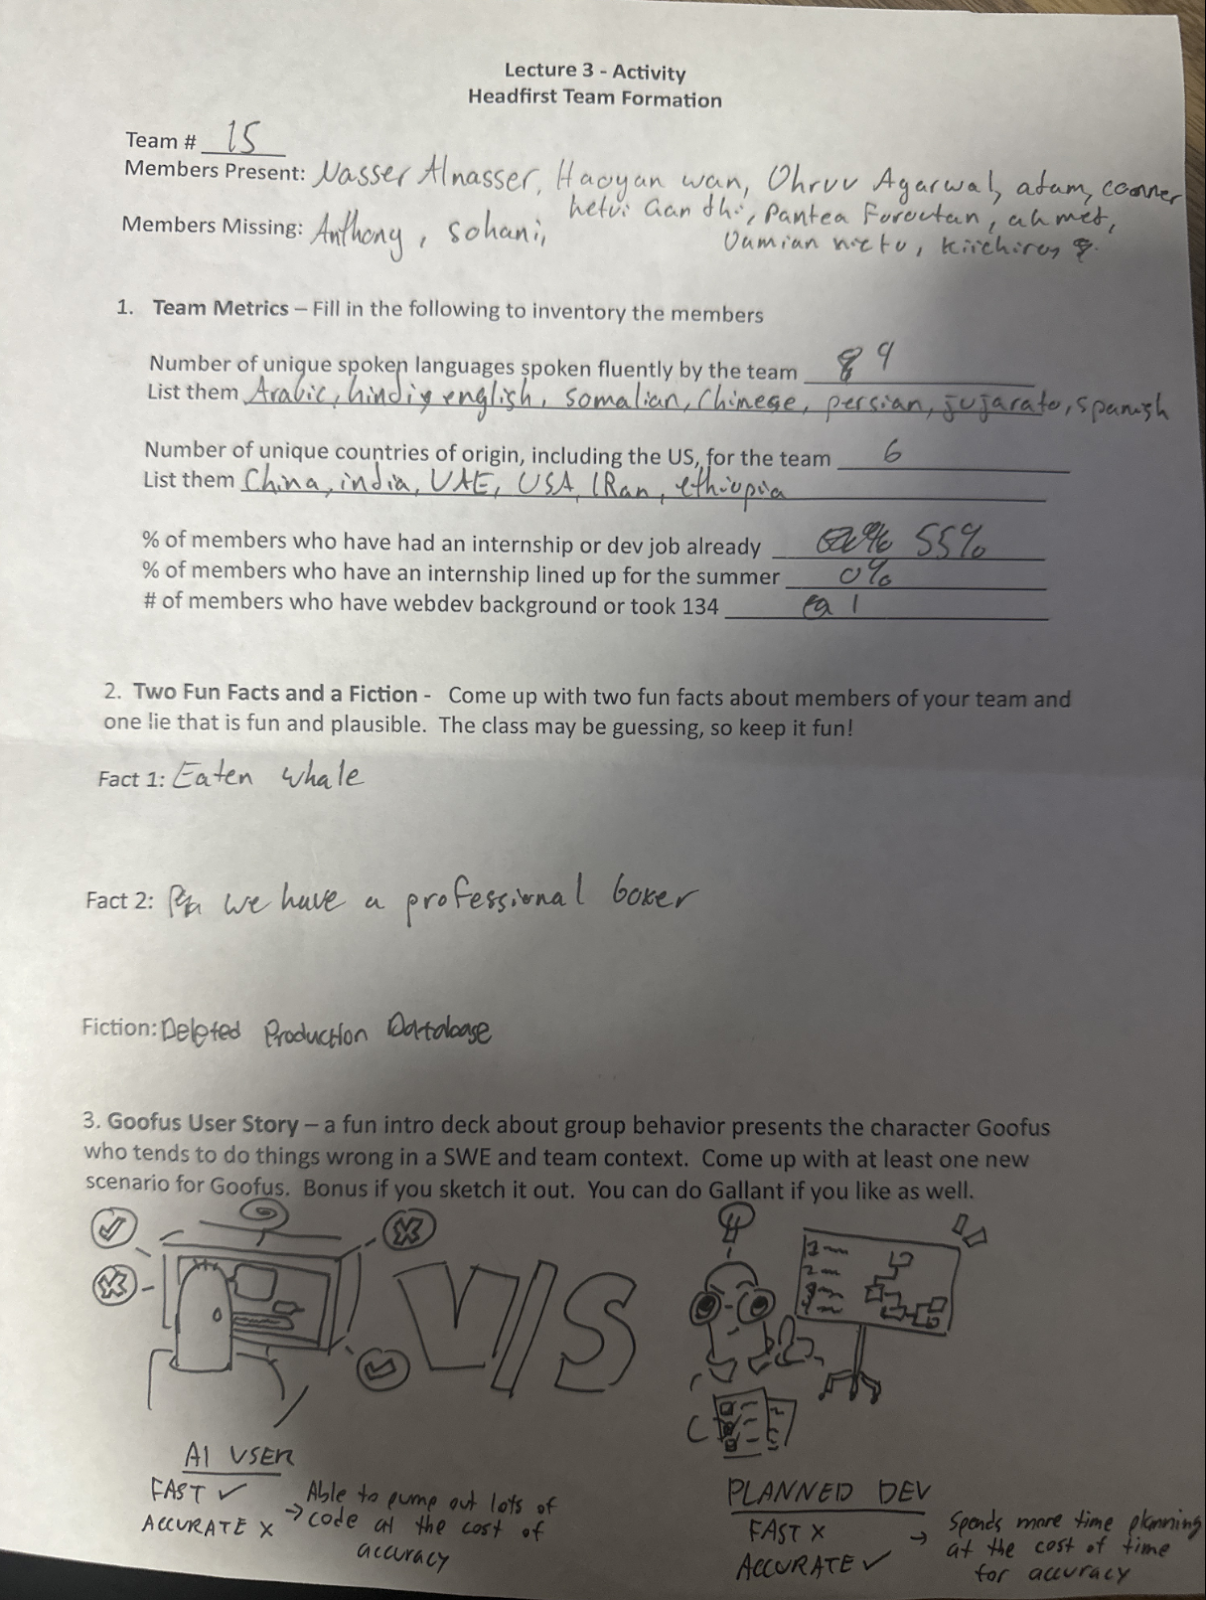 Lecture 3 - Activity
Headfirst Team Formation
Team # 15
Members Present: Nasser Alnasser, Haoyan wan, Dhruv Agarwal, adam, conner
hetvi Gandhi, Pantea Foroutan, ahmet,
Damian nieto, Kiichiro
Members Missing: Anthony, Sohani,
1. Team Metrics – Fill in the following to inventory the members
Number of unique spoken languages spoken fluently by the team 9
List them Arabic, hindi, english, Somalian, Chinese, persian, jujarato, spanish
Number of unique countries of origin, including the US, for the team 6
List them China, india, UAE, USA, IRan, ethiopia
% of members who have had an internship or dev job already 55%
% of members who have an internship lined up for the summer 0%
# of members who have webdev background or took 134 1
2. Two Fun Facts and a Fiction - Come up with two fun facts about members of your team and
one lie that is fun and plausible. The class may be guessing, so keep it fun!
Fact 1: Eaten whale
Fact 2: we have a professional boxer
Fiction: Deleted Production Database
3. Goofus User Story – a fun intro deck about group behavior presents the character Goofus
who tends to do things wrong in a SWE and team context. Come up with at least one new
scenario for Goofus. Bonus if you sketch it out. You can do Gallant if you like as well.
V/S
AI USER
FAST ✓
ACCURATE X
→ Able to pump out lots of
code at the cost of
accuracy
PLANNED DEV
FAST X
ACCURATE ✓
→ Spends more time planning
at the cost of time
for accuracy